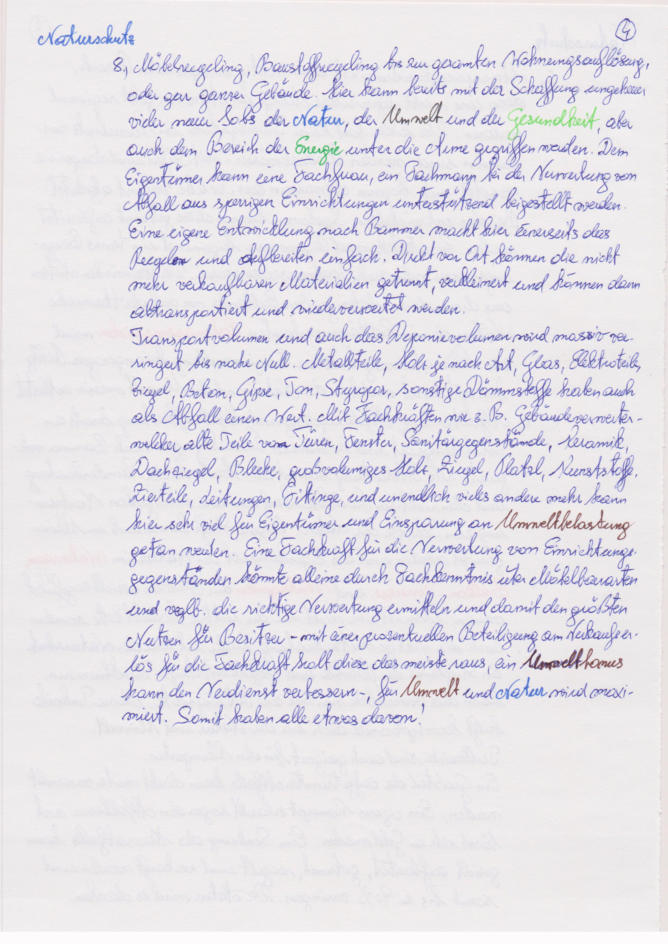 4
Naturschutz
8, Möbelrecycling, Baustoffrecycling bis zur gesamten Wohnungsauflösung,
oder gar ganzer Gebäude. Hier kann bereits mit der Schaffung ungeheuer
vieler neuer Jobs der Natur, der Umwelt und der Gesundheit, aber
auch dem Bereich der Energie unter die Arme gegriffen werden. Dem
Eigentümer kann eine Fachfrau, ein Fachmann bei der Verwertung von
Abfall aus sperrigen Einrichtungen unterstützend beigestellt werden.
Eine eigene Entwicklung nach Brammer macht hier einerseits das
Recyceln und Aufbereiten einfach. Direkt vor Ort können die nicht
mehr verkaufbaren Materialien getrennt, verkleinert und können dann
abtransportiert und wiederverwertet werden.
Transportvolumen und auch das Deponievolumen wird massiv ver-
ringert bis nahe Null. Metallteile, Holz je nach Art, Glas, Elektroteile,
Ziegel, Beton, Gips, Ton, Styropor, sonstige Dämmstoffe haben auch
als Abfall einen Wert. Mit Fachkräften wie z.B. Gebäudeverwerter-
welcher alte Teile von Türen, Fenster, Sanitärgegenstände, Keramik,
Dachziegel, Bleche, großvolumiges Holz, Ziegel, Kunststoffe,
Zierteile, Leitungen, Fittinge, und unendlich vieles andere mehr kann
hier sehr viel für Eigentümer und Einsparung an Umweltbelastung
getan werden. Eine Fachkraft für die Verwertung von Einrichtungs-
gegenständen könnte alleine durch Fachkenntnis über Möbelbauarten
und vglb. die richtige Verwertung ermitteln und damit den größten
Nutzen für Besitzer - mit einer prozentuellen Beteiligung am Verkaufser-
lös für die Fachkraft holt diese das meiste raus, ein Umweltbonus
kann den Verdienst verbessern -, für Umwelt und Natur wird maxi-
miert. Somit haben alle etwas davon!